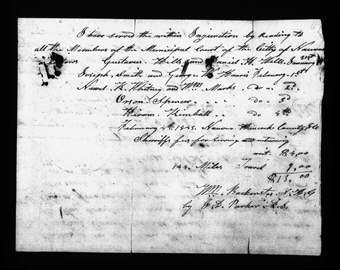 I have served the within Injunction by Reading to
all the Members of the Municipal Court of the City of Nauvoo
Gustavus Hills and Daniel H. Wells January
Joseph Smith and George W. Harris February 1st
Newel K. Whitney and Wm Marks do
Orson Spencer do 3d
Hiram Kimball do 4th
February 4th 1843. Nauvoo Hancock County Ill
Sheriffs fees for serving and returning
writ
Miles Travel
$13.00
Wm. Backenstos
by J. D. Parker D. S.